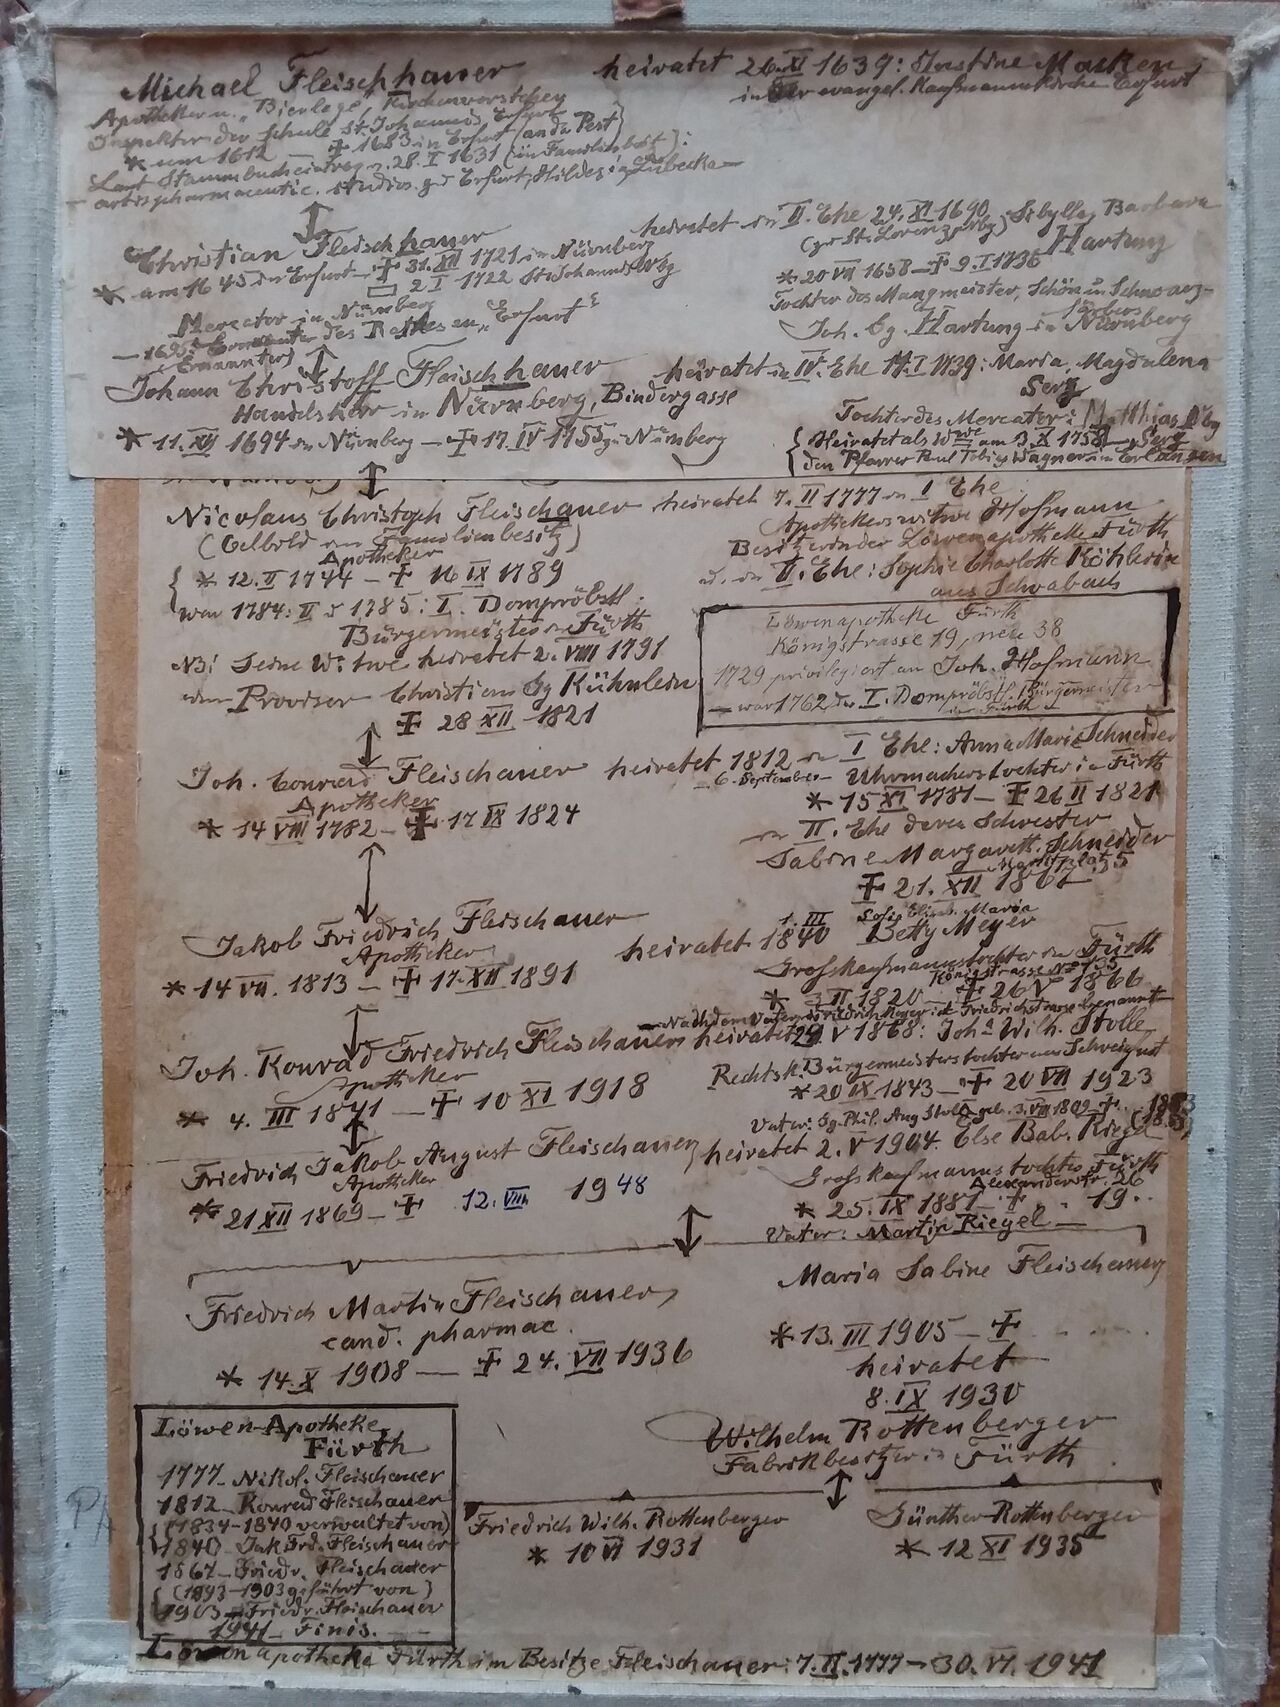 Michael Fleischhauer heiratet 26. XI 1639: Justine Marken
in der evangel. Kaufmannskirche Erfurt
Apotheker u. „Biereige", Kirchenvorsteher
Inspektor der Schule St. Johannis, Erfurt
* um 1612 — ✝ 1683 in Erfurt (an der Pest)
Laut Stammbucheintrag v. 28. I 1631 (im Familienbesitz):
artis pharmaceutic. studios. zu Erfurt, Hildesia, Lübecka —
Christian Fleischhauer heiratet in II. Ehe 24. XI 1690 Sibylla Barbara
(zu St. Lorenz, Nbg) Hartung
* am 1645 in Erfurt — ✝ 31. XII 1721 in Nürnberg
2 I 1722 St. Johannis Nbg
* 20 VII 1658 — ✝ 9. I 1736
Tochter des Mangmeister, Schön u. Schwarz-
färbers
Joh. Gg. Hartung in Nürnberg
Mercator in Nürnberg
— 1695 Genannter des Rathes „Erfurt"
(Ernannter)
Johann Christoff Fleischhauer heiratet in IV. Ehe 14. I 1739: Maria Magdalena
Serz
Handelsherr in Nürnberg, Bindergasse
* 11. XI 1694 in Nürnberg — ✝ 17. IV 1755 zu Nürnberg
Tochter des Mercator: Matthias Nbg
Serz
Heiratet als Wwe am 3. X 1758
den Pfarrer Paul Tobias Wagner in Erlangen
Nicolaus Christoph Fleischauer heiratet 7. II 1777 in I Ehe
Apothekerswitwe Hofmann
(Oelbild im Familienbesitz)
Apotheker
Besitzerin der Löwenapotheke Fürth
* 12. II 1744 — ✝ 16 IX 1789
u. in II. Ehe: Sophie Charlotte Köhlerin
aus Schwabach
war 1784: II u. 1785: I. Dompröbstl.
Bürgermeister in Fürth
NB! Seine Witwe heiratet 2. VIII 1791
den Provisor Christian Gg Kühnlein
✝ 28 XII 1821
Löwenapotheke Fürth
Königstrasse 19, neu 38
1729 privilegiert an Joh. Hofmann
— war 1762 der I. Dompröbstl. Bürgermeister
in Fürth
Joh. Conrad Fleischauer heiratet 1812 in I Ehe: Anna Maria Schneider
6. September — Uhrmacherstochter in Fürth
Apotheker
* 14 VIII 1782 — ✝ 17 IX 1824
* 15 XI 1781 — ✝ 26 II 1821
in II. Ehe deren Schwester
Sabine Margareth. Schneider
Marktplatz 5
✝ 21. XII 1862
Jakob Friedrich Fleischauer heiratet 1. III 1840 Sofie Elisab. Maria
Betty Meyer
Apotheker
* 14 VII. 1813 — ✝ 17. XII 1891
Grosskaufmannstochter in Fürth
Königstrasse No 135
* 3 II 1820 ✝ 26 V 1866
Nach dem Vater Friedrich Meyer ist Friedrichstrasse benannt
Joh. Konrad Friedrich Fleischauer heiratet 29. V 1868: Joha Wilh. Stolle
Apotheker
Rechtsk. Bürgermeisterstochter aus Schweinfurt
* 4. III 1841 — ✝ 10 XI 1918
* 20 IX 1843 — ✝ 20 VII 1923
Vater: Gg. Phil. Aug Stolle geb. 3. VII 1809 ✝
Friedrich Jakob August Fleischauer heiratet 2. V 1904. Else Bab. Riegel
Apotheker
Grosskaufmannstochter Fürth
Alexanderstr. 26
* 21 XII 1869 — ✝ 12. VIII 1948
* 25. IX 1881 — ✝ . . 19..
Vater: Martin Riegel —
Friedrich Martin Fleischauer,
cand. pharmac.
* 14. X 1908 — ✝ 24. VII 1936
Maria Sabine Fleischauer
* 13. III 1905 — ✝ . . . . .
heiratet
8. IX 1930
Wilhelm Rottenberger
Fabrikbesitzer in Fürth
Friedrich Wilh. Rottenberger
* 10 VI 1931
Günther Rottenberger
* 12 XI 1935
Löwen-Apotheke
Fürth
1777 — Nikol. Fleischauer
1812 — Konrad Fleischauer
(1834–1840 verwaltet von)
1840 — Jak. Frd. Fleischauer
1867 — Friedr. Fleischauer
(1893–1903 geführt von)
1903 — Friedr. Fleischauer
1941 — Finis.
Löwenapotheke Fürth im Besitze Fleischauer: 7. II. 1777 — 30. VI. 1941